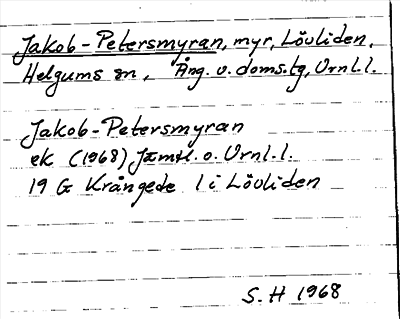 Jakob-Petersmyran, myr, Lövliden,
Helgums sn, Ång. v. doms.tg, Vrnl.l.
Jakob-Petersmyran
ek (1968) Jämtl. o. Vrnl.l.
19 G Krångede 1 i Lövliden
S.H 1968